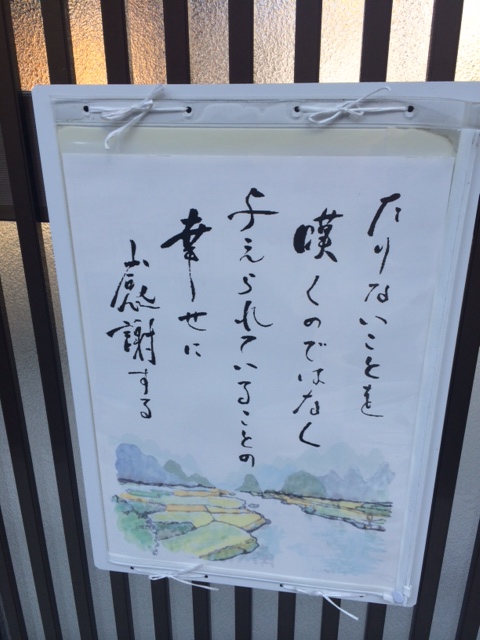 たりないことを
嘆くのではなく
与えられていることの
幸せに
感謝する